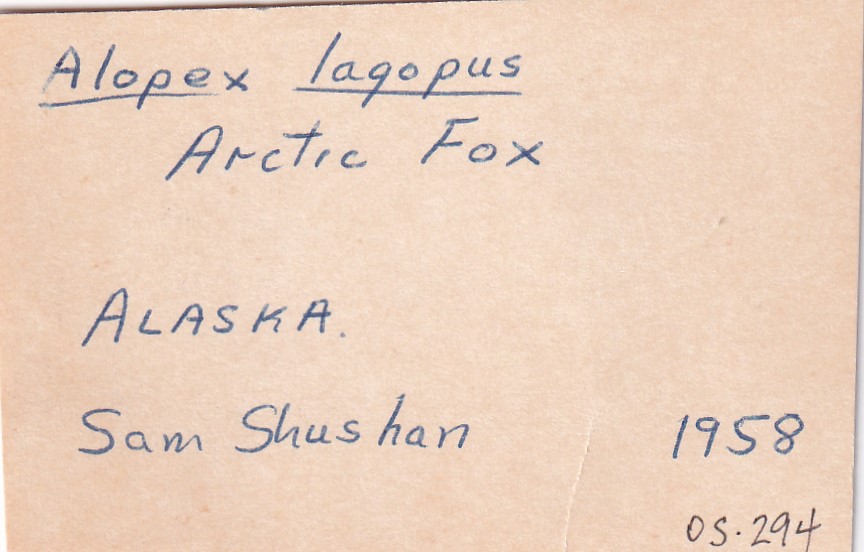 Alopex lagopus
Arctic Fox
ALASKA.
Sam Shushan 1958
OS.294